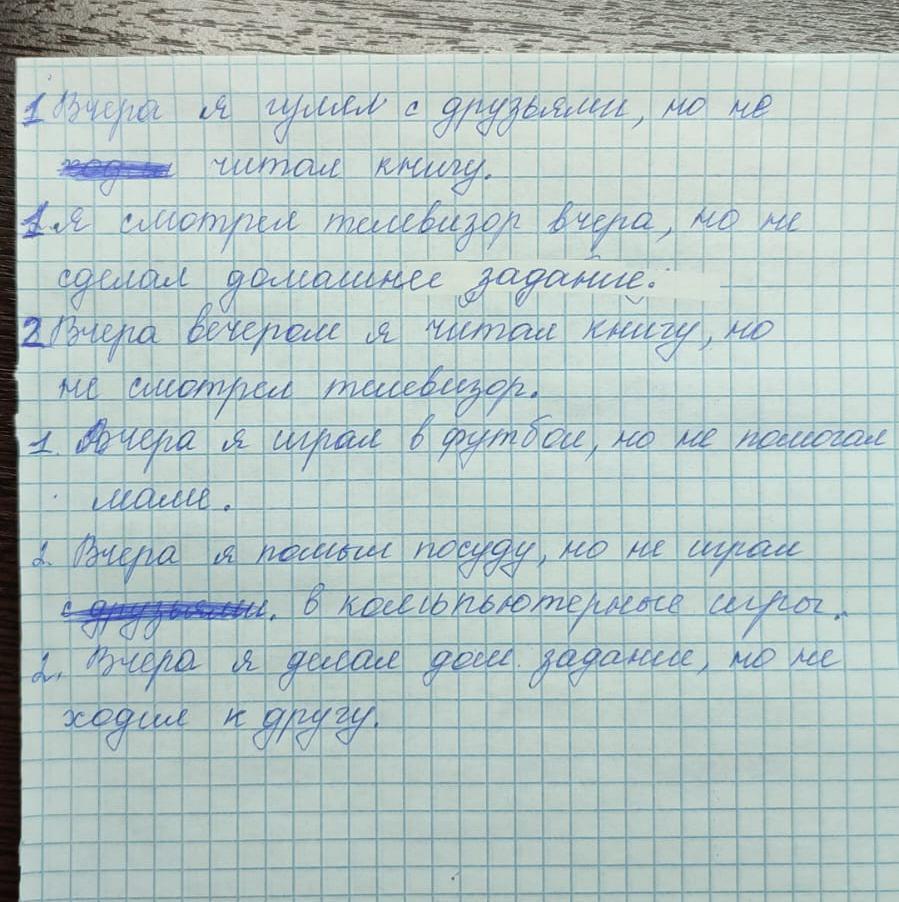 1 Вчера я гулял с друзьями, но не
читал книгу.
1. Я смотрел телевизор вчера, но не
сделал домашнее задание.
2 Вчера вечером я читал книгу, но
не смотрел телевизор.
1. Вчера я играл в футбол, но не помогал
маме.
2. Вчера я помыл посуду, но не играл
с друзьями. в компьютерные игры.
2. Вчера я делал дом. задание, но не
ходил к другу.